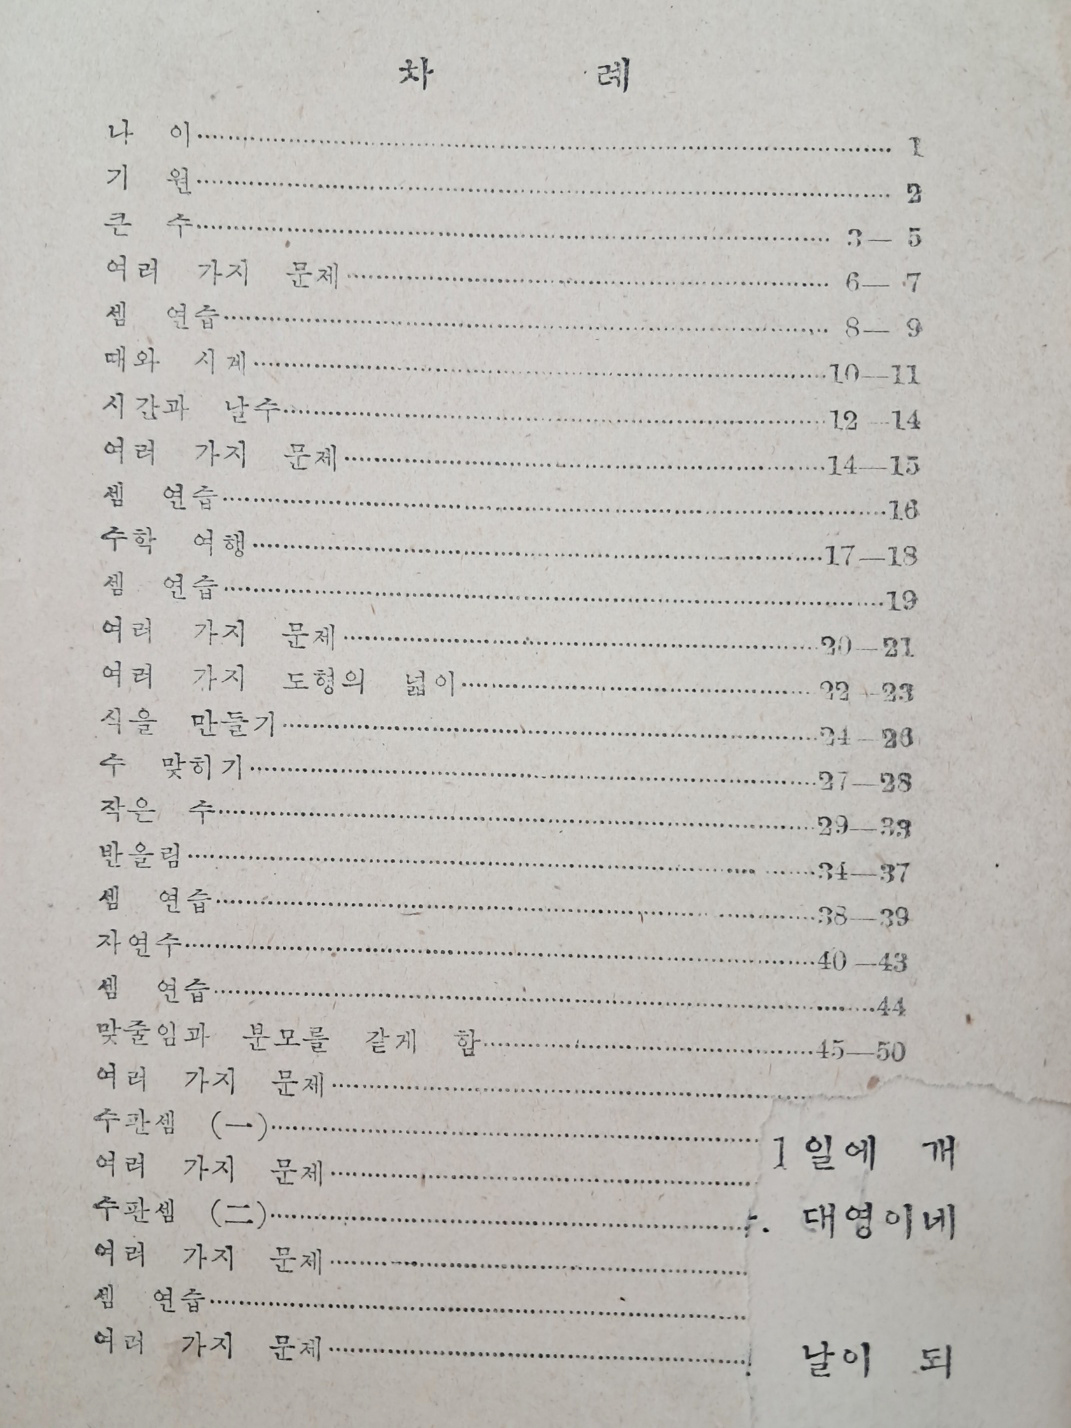 차 례
나 이 1
기 원 2
큰 수 3— 5
여러 가지 문제 6— 7
셈 연습 8— 9
때와 시계 10—11
시간과 날수 12—14
여러 가지 문제 14—15
셈 연습 16
수학 여행 17—18
셈 연습 19
여러 가지 문제 20—21
여러 가지 도형의 넓이 22—23
식을 만들기 24—26
수 맞히기 27—28
작은 수 29—33
반올림 34—37
셈 연습 38—39
자연수 40—43
셈 연습 44
맞줄임과 분모를 같게 함 45—50
여러 가지 문제
수판셈 (一)
1일에 개
여러 가지 문제
수판셈 (二)
대영이네
여러 가지 문제
셈 연습
여러 가지 문제
날이 되